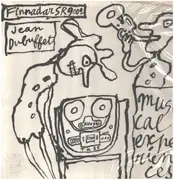 Finnadar SR 9002
Jean
Dubuffet
mus
ical
exper
ien
ces